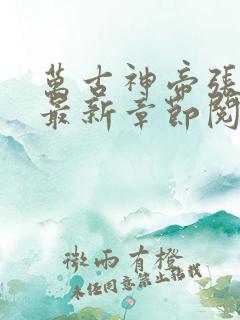 萬古神帝張
最新章節閱
微雨有橙
未经同意禁止转载